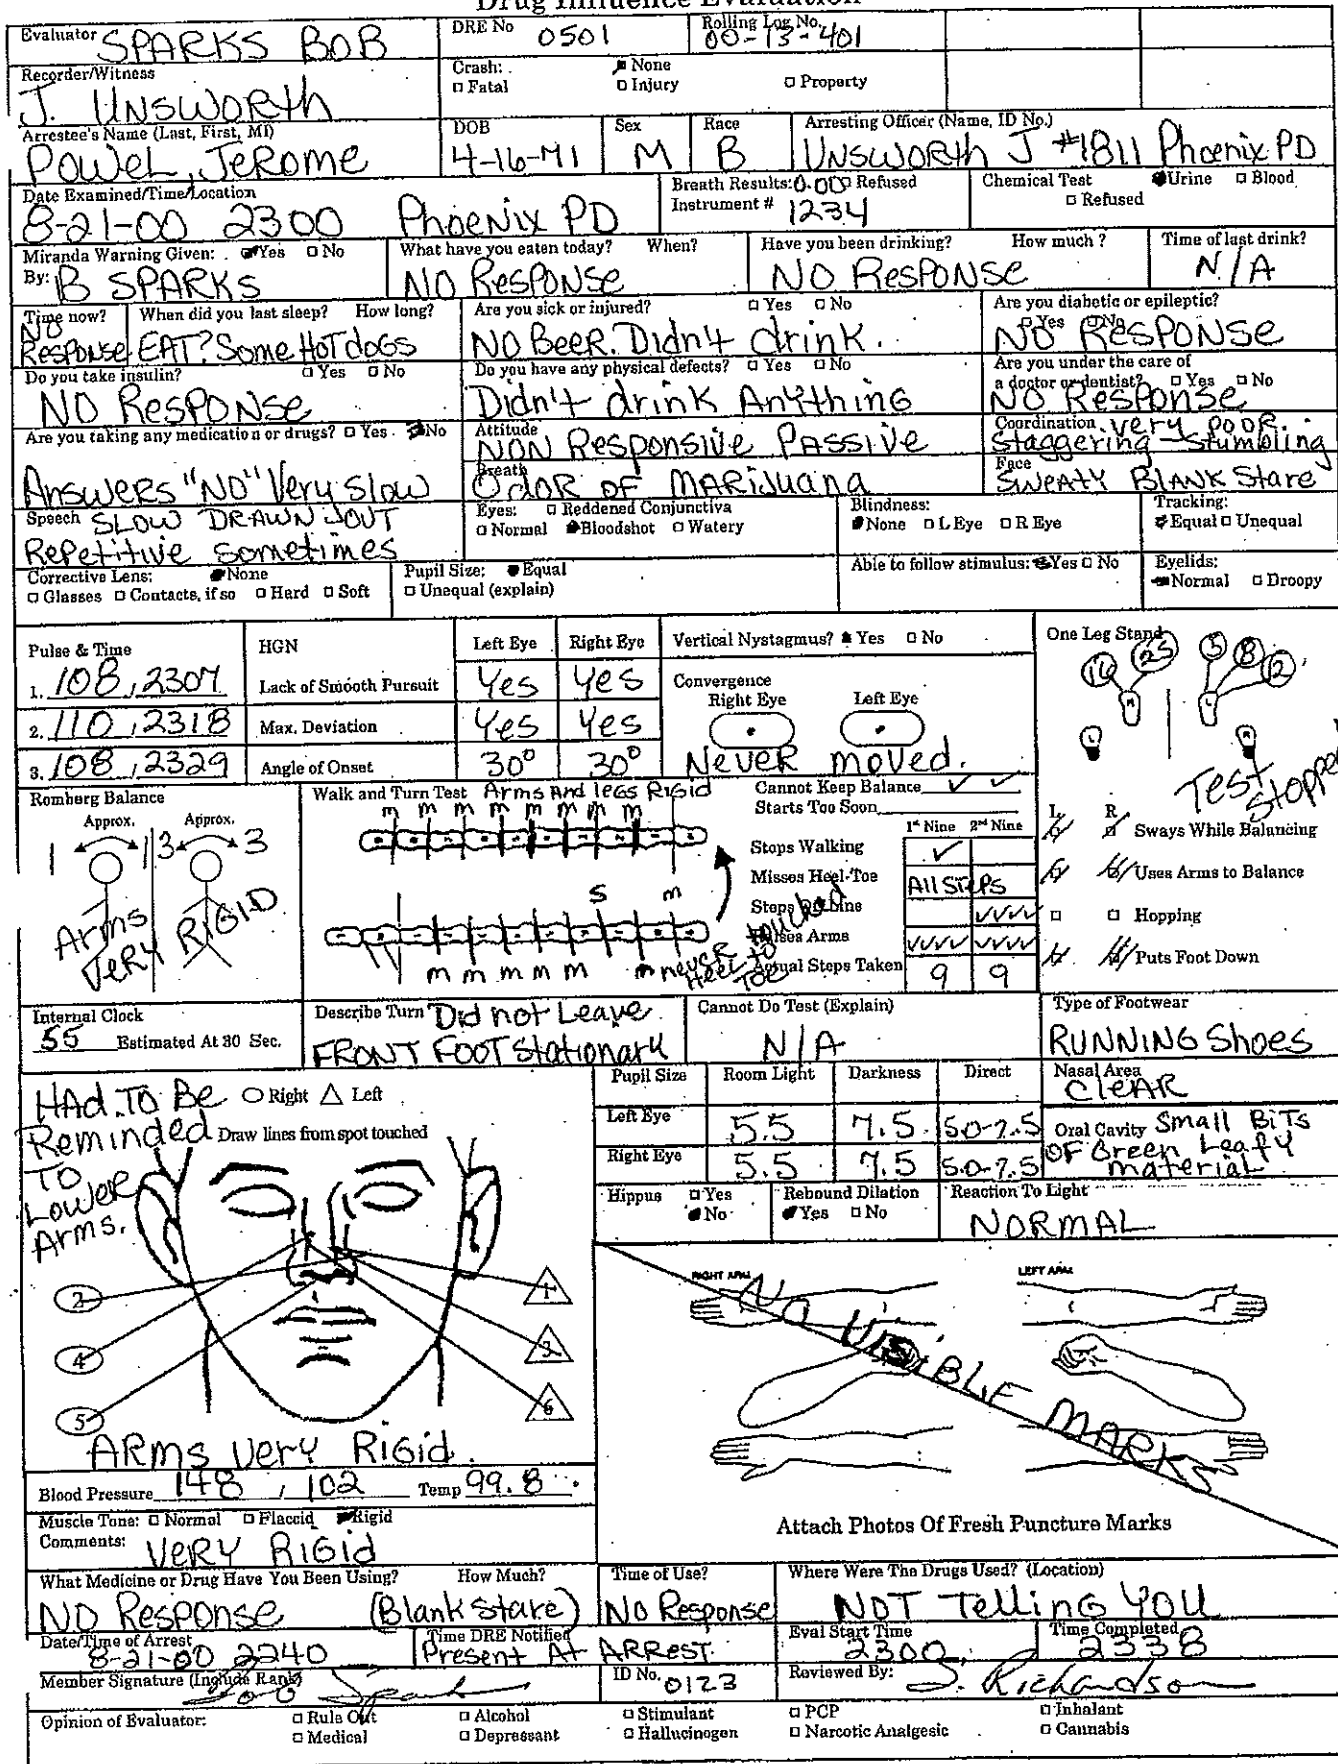 Drug Influence Evaluation
Evaluator SPARKS BOB
DRE No 0501
Rolling Log No. 00-13-401
Recorder/Witness
J. UNSWORTH
Crash: None
Fatal Injury Property
Arrestee's Name (Last, First, MI)
POWEL, JEROME
DOB
4-16-71
Sex
M
Race
B
Arresting Officer (Name, ID No.)
UNSWORTH J #1811 Phoenix PD
Date Examined/Time/Location
8-21-00 2300 Phoenix PD
Breath Results: 0.00 Refused
Instrument # 1234
Chemical Test Urine Blood
Refused
Miranda Warning Given: Yes No
By: B SPARKS
What have you eaten today? When?
NO RESPONSE
Have you been drinking? How much ?
NO RESPONSE
Time of last drink?
N/A
Time now?
NO RESPONSE
When did you last sleep? How long?
EAT? Some HOT dOGS
Are you sick or injured? Yes No
NO BEER. Didn't drink.
Are you diabetic or epileptic?
Yes No
NO RESPONSE
Do you take insulin? Yes No
NO RESPONSE
Do you have any physical defects? Yes No
Didn't drink Anything
Are you under the care of
a doctor or dentist? Yes No
NO Response
Are you taking any medication or drugs? Yes No
Answers "NO" Very Slow
Attitude
NON Responsive PASSIVE
Coordination very poor.
Staggering - Stumbling
Breath
OdOR OF MARIJUANA
Face
SWEATY BLANK Stare
Speech SLOW DRAWN OUT
Repetitive sometimes
Eyes: Reddened Conjunctiva
Normal Bloodshot Watery
Blindness:
None L Eye R Eye
Tracking:
Equal Unequal
Corrective Lens: None
Glasses Contacts, if so Hard Soft
Pupil Size: Equal
Unequal (explain)
Able to follow stimulus: Yes No
Eyelids:
Normal Droopy
Pulse & Time
1. 108, 2307
2. 110, 2318
3. 108, 2329
HGN Left Eye Right Eye
Lack of Smooth Pursuit Yes Yes
Max. Deviation Yes Yes
Angle of Onset 30° 30°
Vertical Nystagmus? Yes No
Convergence
Right Eye Left Eye
Never moved.
One Leg Stand
16 25 5 8 12
R L
L R
Test Stopped
L R
Sways While Balancing
Uses Arms to Balance
Hopping
Puts Foot Down
Romberg Balance
Approx. Approx.
1 1 3 3
Arms VERY RIGID
Walk and Turn Test Arms And legs RIGID
m m m m m m m m
S m
m m m m m m never touched Heel to Toe
Cannot Keep Balance
Starts Too Soon
1st Nine 2nd Nine
Stops Walking
Misses Heel-Toe All Steps
Steps Off Line
Raises Arms
Actual Steps Taken 9 9
Internal Clock
55 Estimated At 30 Sec.
Describe Turn Did not Leave
FRONT FOOT Stationary
Cannot Do Test (Explain)
N/A
Type of Footwear
RUNNING Shoes
HAd To Be Reminded To Lower Arms.
Right Left
Draw lines from spot touched
2
4
5
1
3
6
ARMS VERY RIGID
Pupil Size Room Light Darkness Direct
Left Eye 5.5 7.5 5.0-7.5
Right Eye 5.5 7.5 5.0-7.5
Nasal Area
CleAR
Oral Cavity Small BiTS
OF Green Leafy
material
Hippus Yes
No
Rebound Dilation
Yes No
Reaction To Light
NORMAL
RIGHT ARM
LEFT ARM
NO VISIBLE MARKS
Attach Photos Of Fresh Puncture Marks
Blood Pressure 148 / 102 Temp 99.8
Muscle Tone: Normal Flaccid Rigid
Comments: VERY RIGid
What Medicine or Drug Have You Been Using? How Much?
NO RESPONSE (Blank stare)
Time of Use?
NO Response
Where Were The Drugs Used? (Location)
NOT Telling YOU
Date/Time of Arrest
8-21-00 2240
Time DRE Notified
Present At ARREST.
Eval Start Time
2300
Time Completed
2338
Member Signature (Include Rank)
Bob Sparks
ID No. 0123
Reviewed By:
S. Richardson
Opinion of Evaluator:
Rule Out Alcohol Stimulant PCP Inhalant
Medical Depressant Hallucinogen Narcotic Analgesic Cannabis